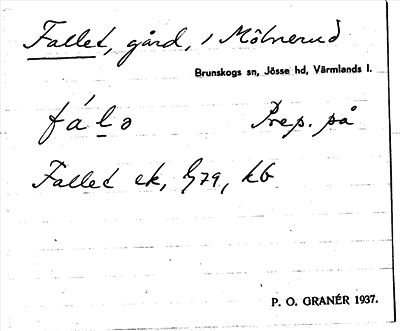 Fallet, gård, i Mölnerud
Brunskogs sn, Jösse hd, Värmlands l.
fálə Prep. på
Fallet ek, G79, kb
P. O. GRANÉR 1937.